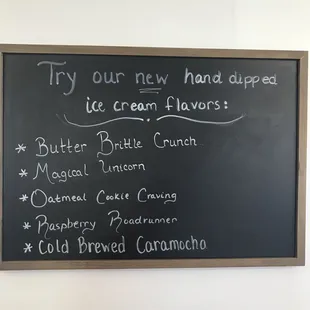 Try our new hand dipped
ice cream flavors:
* Butter Brittle Crunch
* Magical Unicorn
* Oatmeal Cookie Craving
* Raspberry Roadrunner
* Cold Brewed Caramocha